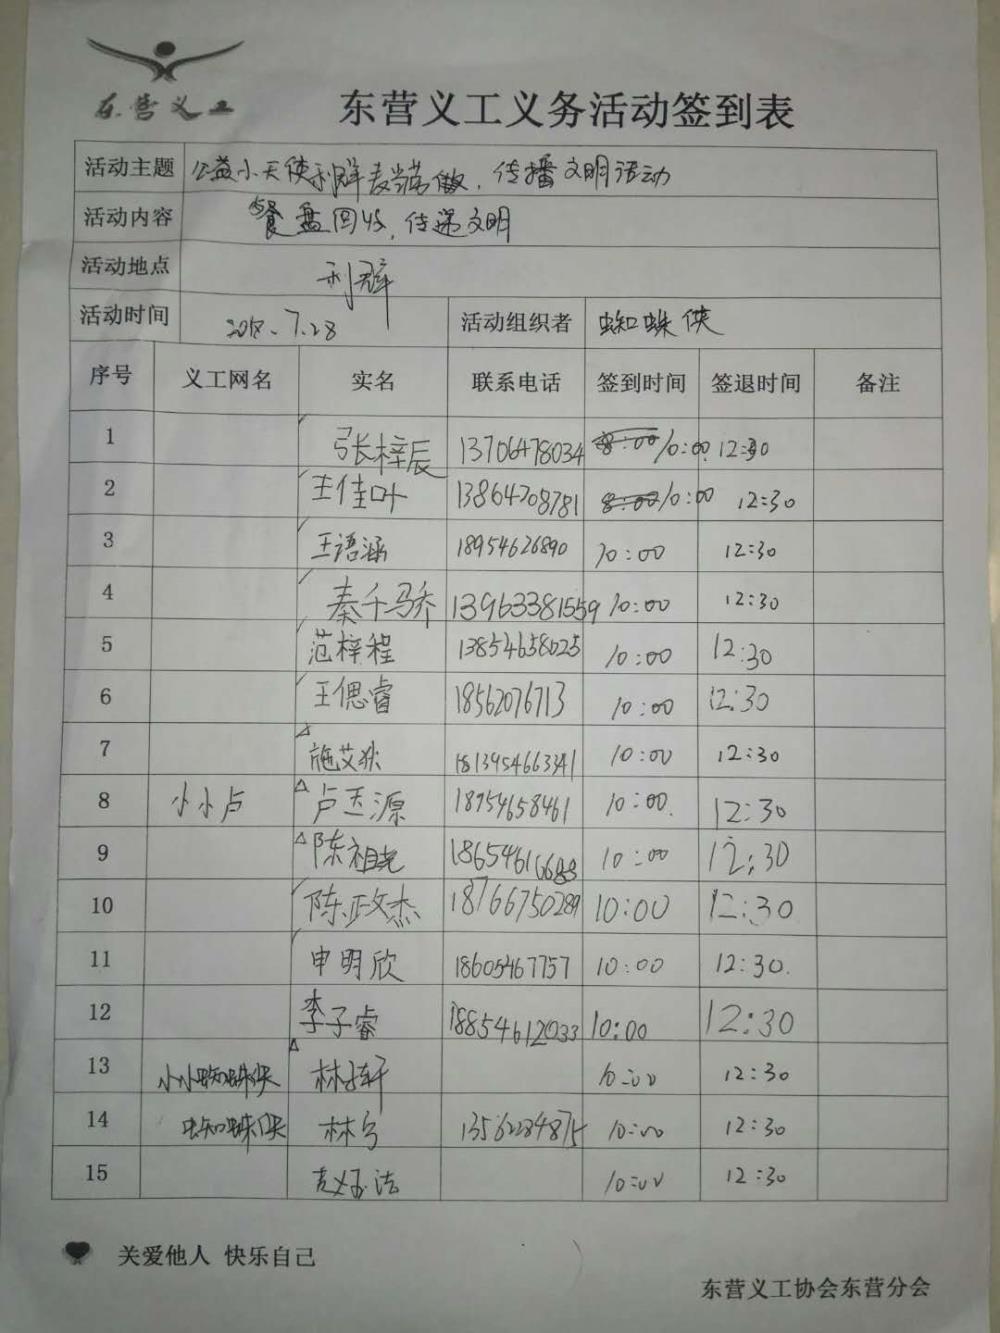 东营义工
东营义工义务活动签到表
活动主题 公益小天使利群麦当劳做，传播文明活动
活动内容 餐盘回收，传递文明
活动地点 利群
活动时间 2018.7.28 活动组织者 蜘蛛侠
序号 义工网名 实名 联系电话 签到时间 签退时间 备注
1 张梓辰 13706478034 8:00 10:00 12:30
2 王佳叶 13864708781 8:00 10:00 12:30
3 王语涵 18954626890 10:00 12:30
4 秦千骄 13963381559 10:00 12:30
5 范梓程 13854658025 10:00 12:30
6 王偲睿 18562076713 10:00 12:30
7 施艾狄 10:00 12:30
8 小小卢 卢玉源 18954658461 10:00 12:30
9 陈祖尧 10:00 12:30
10 陈政杰 18766750289 10:00 12:30
11 申明欣 18605467757 10:00 12:30
12 李子睿 18854612033 10:00 12:30
13 小小蜘蛛侠 林子轩 10:00 12:30
14 蜘蛛侠 10:00 12:30
15 10:00 12:30
关爱他人 快乐自己
东营义工协会东营分会